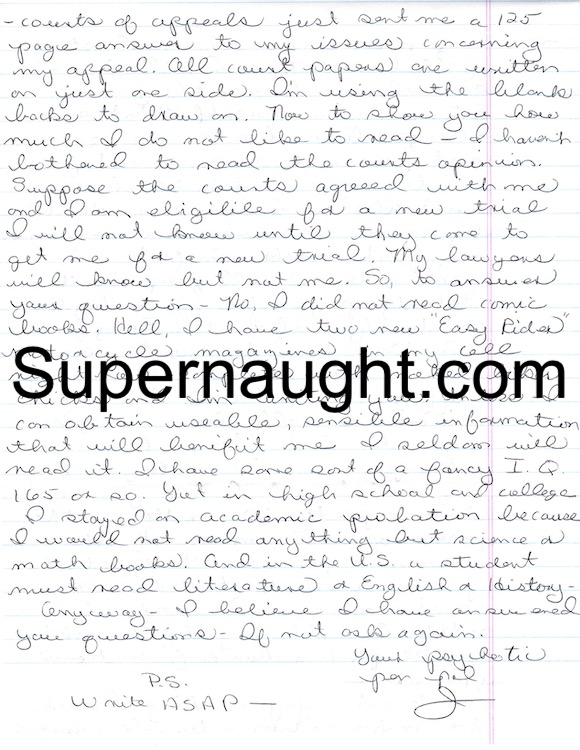 - courts of appeals just sent me a 125
page answer to my issues concerning
my appeal. All court papers are written
on just one side. I'm using the blank
backs to draw on. Now to show you how
much I do not like to read - I haven't
bothered to read the courts opinion.
Suppose the courts agreeed with me
and I am eligible for a new trial
I will not know until they come to
get me for a new trial. My lawyers
will know but not me. So, to answer
your question - No, I did not read comic
books. Hell, I have two new "Easy Rider"
motorcycle magazines in my cell
Supernaught.com
can obtain useable, sensible information
that will benifit me I seldom will
read it. I have some sort of a fancy I.Q.
165 or so. Yet in high school and college
I stayed on academic probation because
I would not read anything but science or
math books. And in the U.S. a student
must read literature & English & History-
Anyway - I believe I have answered
your questions - If not ask again.
Your psychotic
pen pal
P.S.
Write ASAP —